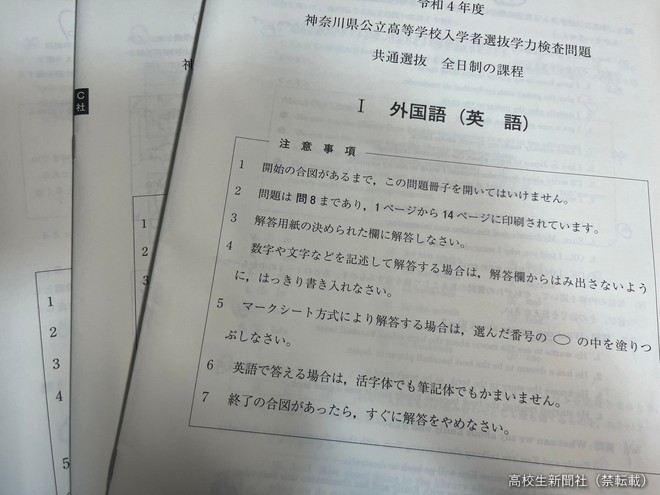 令和4年度
神奈川県公立高等学校入学者選抜学力検査問題
共通選抜 全日制の課程
Ⅰ 外国語(英 語)
注意事項
1 開始の合図があるまで,この問題冊子を開いてはいけません。
2 問題は 問8 まであり,1ページから14ページに印刷されています。
3 解答用紙の決められた欄に解答しなさい。
4 数字や文字などを記述して解答する場合は,解答欄からはみ出さないよう
に,はっきり書き入れなさい。
5 マークシート方式により解答する場合は,選んだ番号の ⬭ の中を塗りつ
ぶしなさい。
6 英語で答える場合は,活字体でも筆記体でもかまいません。
7 終了の合図があったら,すぐに解答をやめなさい。
C社
神
1
2
3
1
2
3
4
5
高校生新聞社(禁転載)